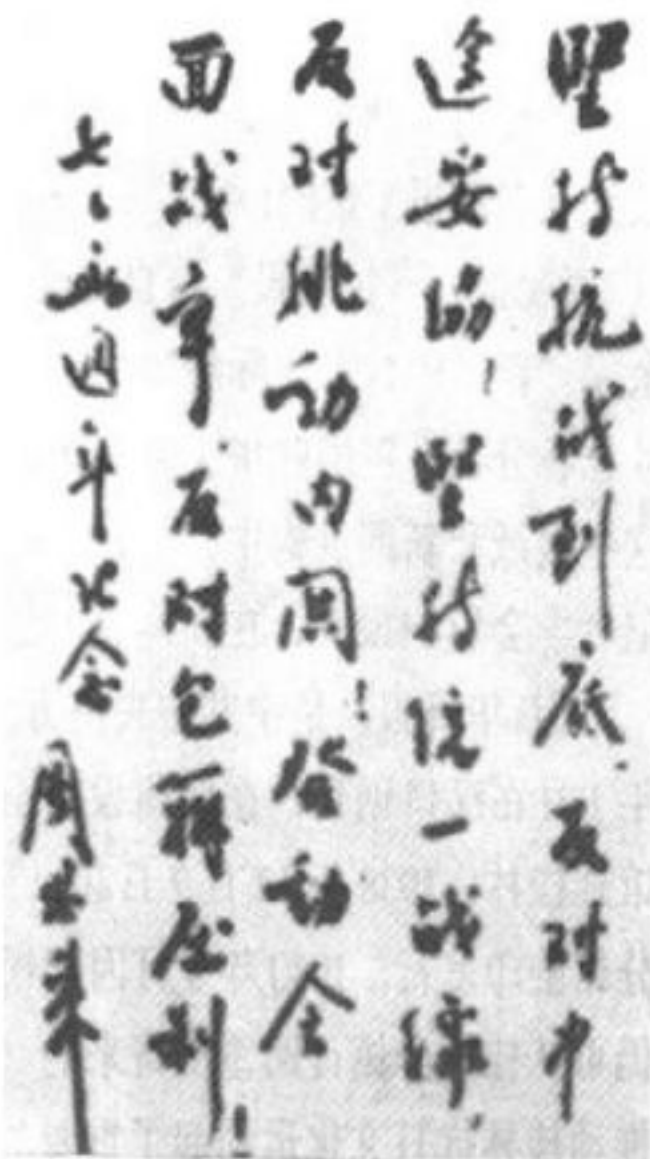 堅持抗战到底，反对中
途妥协！堅持统一战線，
反对挑动内閧！發动全
面战争，反对包辦压制！
七々两周年纪念 周恩来